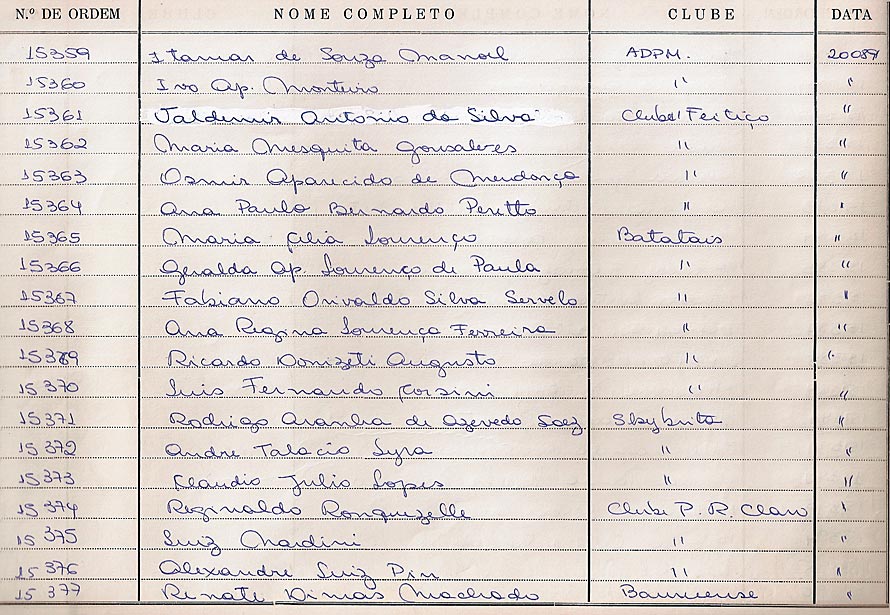 N.º DE ORDEM NOME COMPLETO CLUBE DATA
15359 Itamar de Souza Manoel ADPM. 200889
15360 Ivo Ap. Monteiro " "
15361 Valdemir Antonio da Silva Clube Feitiço "
15362 Maria Mesquita Gonsalves " "
15363 Osmir Aparecido de Mendonça " "
15364 Ana Paula Bernardo Peretto " "
15365 Maria Celia Lourenço Batatais "
15366 Geralda Ap. Lourenço de Paula " "
15367 Fabiano Orivaldo Silva Servelo " "
15368 Ana Regina Lourença Ferreira " "
15369 Ricardo Donizeti Augusto " "
15370 Luis Fernando Corsini " "
15371 Rodrigo Aranha de Azevedo Saez "
15372 Andre Talacio Lyra " "
15373 Claudio Julio Lopes " "
15374 Reginaldo Clube P. R. Claro "
15375 Luiz Nardini " "
15376 Alexandre Luiz Pin " "
15377 Renate Dimas Machado "